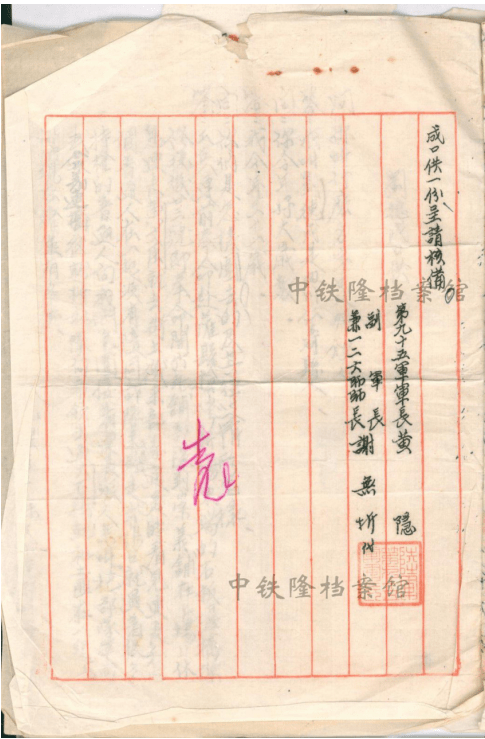 成口供一份呈請核備。
第九十五軍軍長黃隱
副軍長
兼一二六師師長謝無圻代
中铁隆档案馆
中铁隆档案馆